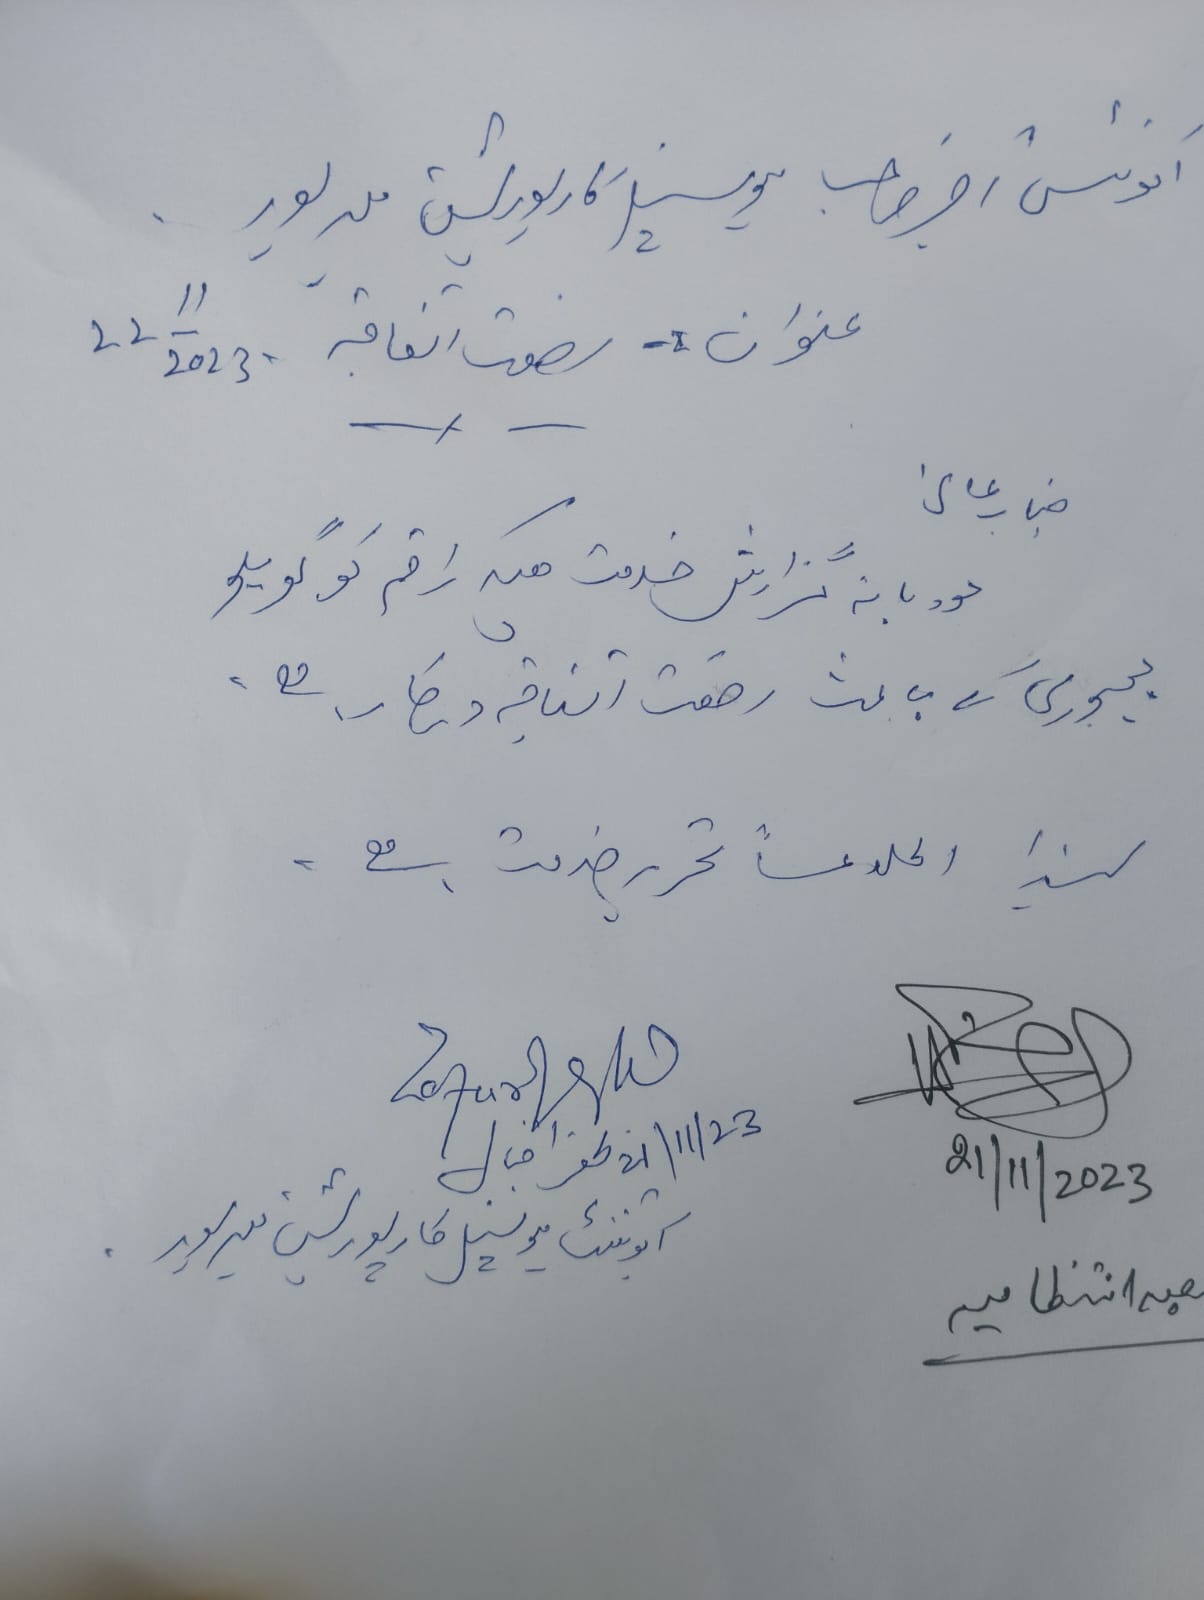 اکونٹس آفیسر صاحب میونسپل کارپوریشن میرپور ۔
عنوان :- رخصت اتفاقیہ ۔ 22/11/2023
جناب عالی!
مودبانہ گزارش خدمت ھیکہ راقم کو گھریلو
مجبوری کے باعث رخصت اتفاقیہ درکار ہے ۔
لہذا اطلاعاً تحریر خدمت ہے ۔
Zafar Iqbal
21/11/23 ظفر اقبال
اکونٹنٹ میونسپل کارپوریشن میرپور ۔
21/11/2023
شعبہ انتظامیہ